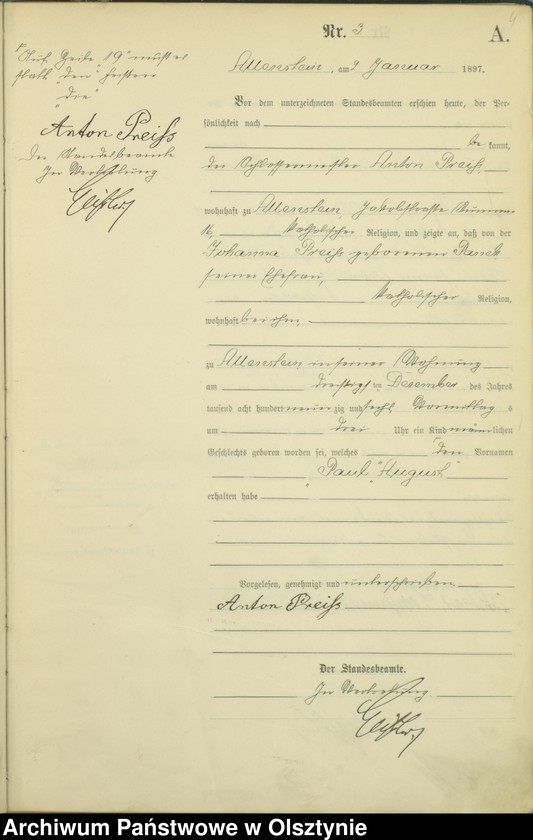 Nr. 3
A.
Auf Zeile 19 muß es
statt "den" heißen
"die"
Anton Preiß
Der Standesbeamte
In Vertretung
Allenstein, am 2 Januar 1897.
Vor dem unterzeichneten Standesbeamten erschien heute, der Per-
sönlichkeit nach
be kannt,
der Schlossermeister Anton Preiß,
wohnhaft zu Allenstein, Jakobstraße Nummer
katholischer Religion, und zeigte an, daß von der
Johanna Preiß geborenen
seiner Ehefrau,
katholischer Religion,
wohnhaft bei ihm
zu Allenstein in seiner Wohnung
am dreißigsten Dezember des Jahres
tausend acht hundert neun zig und sechs Vormittag s
um drei Uhr ein Kind männlichen
Geschlechts geboren worden sei, welches den Vornamen
"Paul" "August"
erhalten habe
Vorgelesen, genehmigt und unterschrieben
Anton Preiß
Der Standesbeamte.
In Vertretung
Archiwum Państwowe w Olsztynie